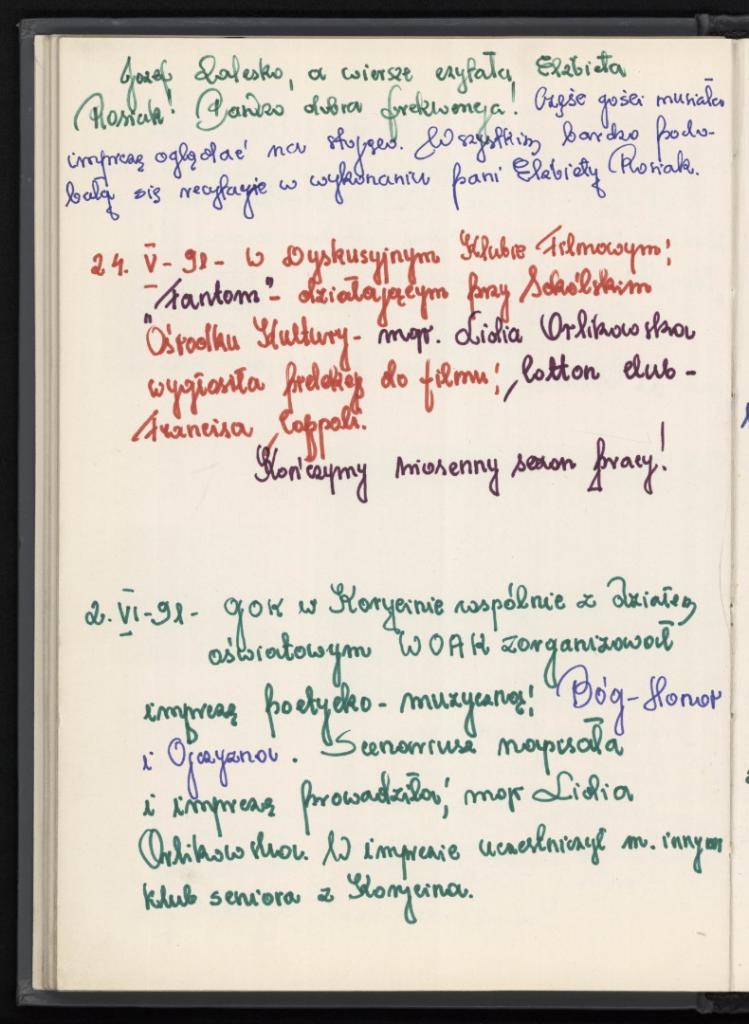 Józef Zalesko, a wiersze czytała, Elżbieta
Rosiak! Bardzo dobra frekwencja! Część gości musiała
imprezę oglądać na stojąco. Wszystkim bardzo podo-
bałą się recytacje w wykonaniu pani Elżbiety Rosiak.
24. V - 91 - w Dyskusyjnym Klubie Filmowym:
"Fantom" - działającym przy Sokólskim
Ośrodku Kultury - mgr. Lidia Orlikowska
wygłosiła prelekcję do filmu: Cotton club -
Francisa Coppoli.
Kończymy wiosenny sezon pracy!
2. VI - 91 - GOK w Korycinie wspólnie z działem
oświatowym WOAK zorganizował
imprezę poetycko - muzyczną: Bóg - Honor
i Ojczyzna. Scenariusz napisała
i imprezę prowadziła: mgr Lidia
Orlikowska. W imprezie uczestniczył m. innym
klub seniora z Korycina.